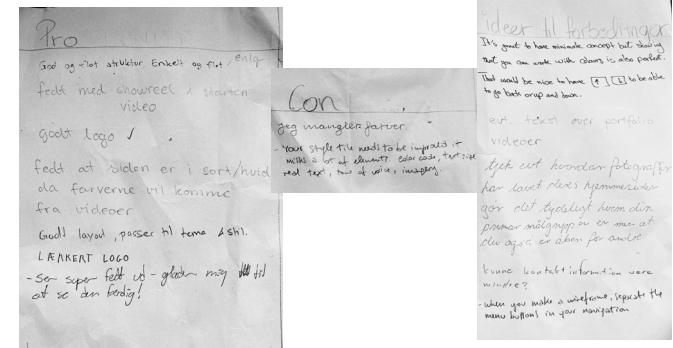 Pro
God og flot struktur. Enkelt og flot, enig
fedt med showreel i starten
video
godt logo ✓
fedt at siden er i sort/hvid
da farverne vil komme
fra videoer
Godt layout, passer til tema & stil.
LÆKKERT LOGO
- Ser super fedt ud - glæder mig til
at se den færdig!
Con
jeg mangler farver.
- Your style tile needs to be improved it
a lot of elements. color code, text size
real text, tone of voice, imagery.
ideer til forbedringer
It's great to have minimale concept but showing
that you can work with colours is also perfect.
That would be nice to have [↑] [↓] to be able
to go back or up and down.
evt. tekst over portfolio
videoer
tjek evt hvordan fotografer
har lavet deres hjemmesider
gør det tydeligt hvem din
primær målgruppe er men at
du også er åben for andre
kunne kontakt information være
mindre?
- when you make a wireframe, separate the
menu buttons in your navigation